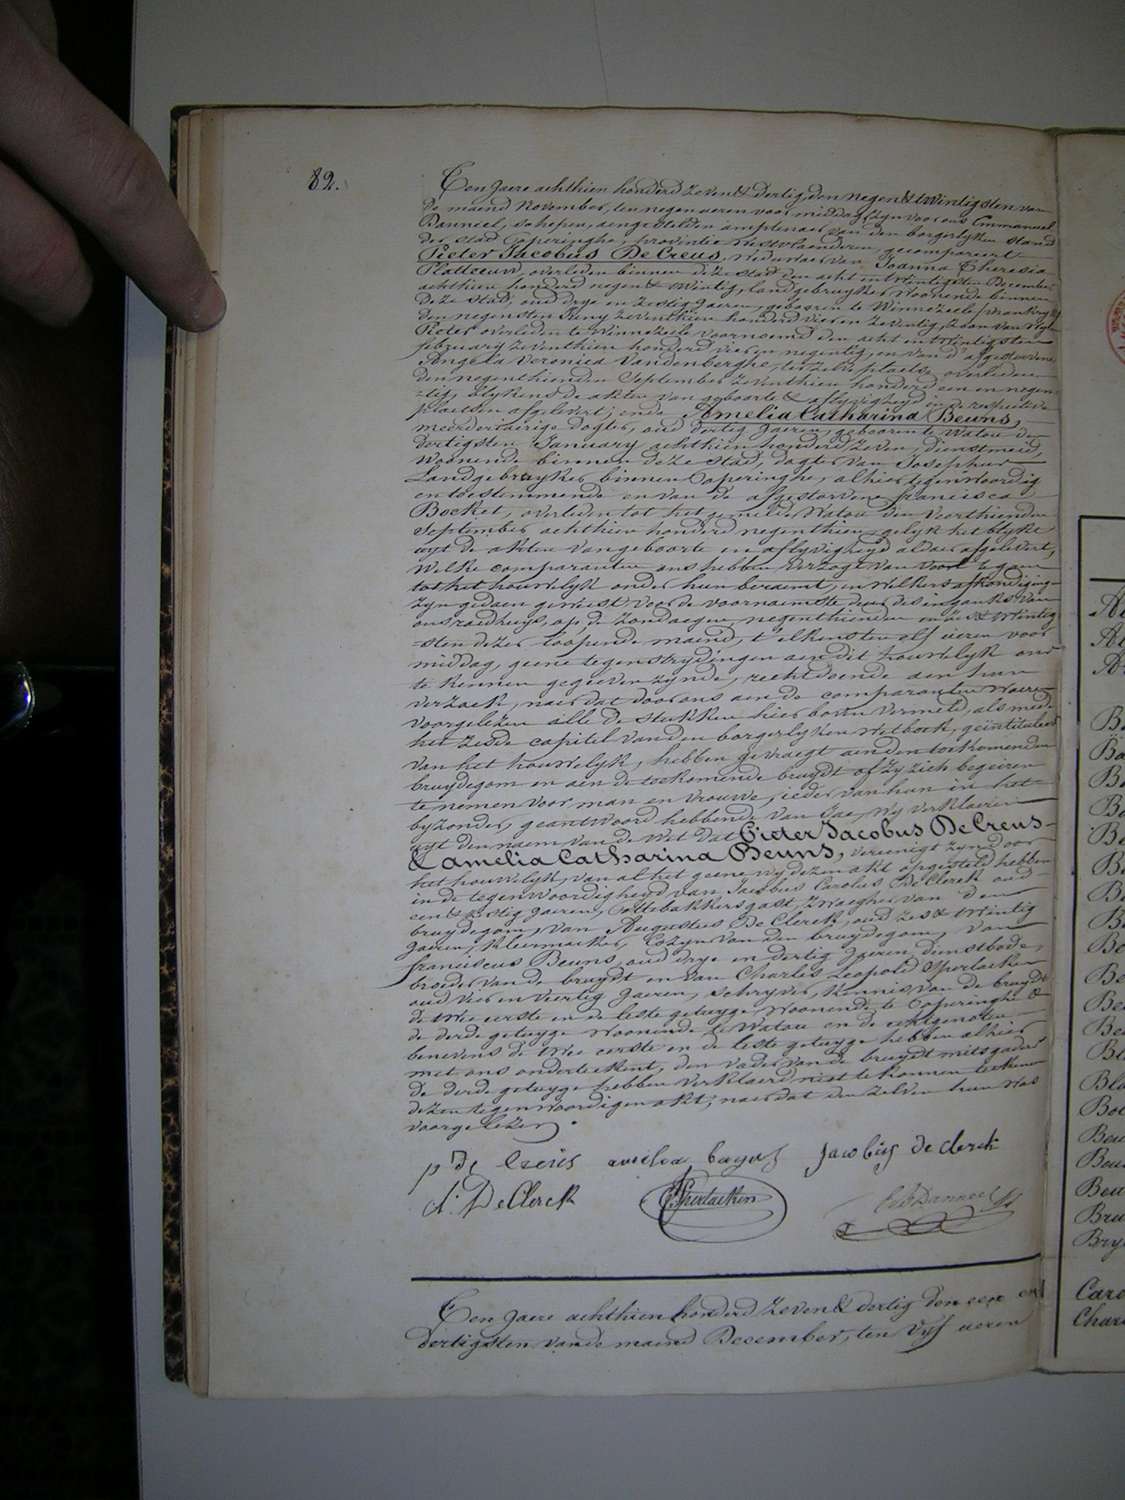 82.
Ten Jaere achthien honderd zeven & dertig den negen & twintigsten van
de maend November, ten negen ueren voor middag, zyn voor ons Emmanuel
Banneel, schepen, aengestelden amptenaer van den borgerlyken stand
der stad Poperinghe, provintie westvlaenderen, gecompareert
Pieter Jacobus De Creus, Weduwaer van Joanna Theresia
Platteeuw, overleden binnen deze stad den acht en twintigsten December
achthien honderd negen & twintig, landgebruyker, woonende binnen
deze stad, oud drye en zestig jaeren, gebooren te Winnezeele (vrankryk)
den negensten Juny zeventhien honderd vier en zeventig, zoon van wyl
Pieter overleden te Winnezeele voornoemd den acht en twintigsten
february zeventhien honderd vier en negentig, en van d'afgestorvene
Angela Veronica Vandenberghe, ten zelve plaetse overleden
den negenthienden September zeventhien honderd een en negen-
-tig, blykens de akten van geboorte & aflyvigheyd in de respective
plaetsen afgelevert; ende Amelia Catharina Beuns,
meerderjaerige dogter, oud dertig jaeren, gebooren te Watou den
dertigsten January achthien honderd zeven, dienstmeid,
woonende binnen deze stad, dogter van Josephus
Landgebruyker binnen Poperinghe, alhier tegenwoordig
en toestemmende en van de afgestorvene francisca
Bocket, overleden tot het gemelde Watou den veerthienden
September achthien honderd negenthien, gelyk het blykt
uyt de akten van geboorte en aflyvigheyd aldaer afgelevert,
Welke comparanten ons hebben verzogt van voor te gaen
tot het houwelyk onder hun beraemt, en welkers afkondiging-
zyn gedaen geweest voor de voornaemste deur des ingangs van
ons raedhuys, op de zondaegen negenthienden en zes & twintig
-sten dezer loopende maend, t'elkensten elf ueren voor
middag, geene tegenstrydingen aen dit houwelyk ons
te kennen gegeeven zynde, rechtdoende aen hun
verzoek, naer dat door ons aen de comparanten waeren
voorgelezen alle de stukken hier boven vermeld, als mede
het zesde capitel van den borgerlyken wetboek, geïntituleerd
van het houwelyk, hebben gevraegt aen den toekomenden
bruydegom en aen de toekomende bruydt of zy zich begeiren
te nemen voor man en vrouwe, ieder van hun in het
byzonder, geantwoord hebbende van Jae, wy verklaeren
uyt den naem van de Wet dat Pieter Jacobus De Creus
& Amelia Catharina Beuns, vereenigt zyn door
het houwelyk, van al het geene wy dezen akt opgesteld hebben
in de tegenwoordigheyd van Jacobus Carolus De Clerck oud
een & zestig jaeren, Pottebakkersgast, zwaegher van den
bruydegom, van Augustus De Clerck, oud zes & twintig
jaeren, kleermaeker, Cozyn van den bruydegom, van
franciscus Beuns, oud drye en dertig jaeren, dienstbode,
broeder van de bruydt en van Charles Leopold Sperlaeken
oud vier en veertig jaeren, schryver, kennis van de bruydt
de twee eerste en de leste getuyge woonende te Poperinghe &
de derde getuyge woonende te Watou en de echtgenoten
benevens de twee eerste en de leste getuyge hebben alhier
met ons onderteekent, den vader van de bruydt mitsgaders
de derde getuyge hebben verklaerd niet te konnen teekenen
dezen tegenwoordigen akt, naer dat den zelven hun was
voorgelezen.
p de Creus amelia Jacobus de clerck
A. De Clerck Sperlaeken Banneel
Ten Jaere achthien honderd zeven & dertig den een en
dertigsten van de maend December, ten vyf ueren